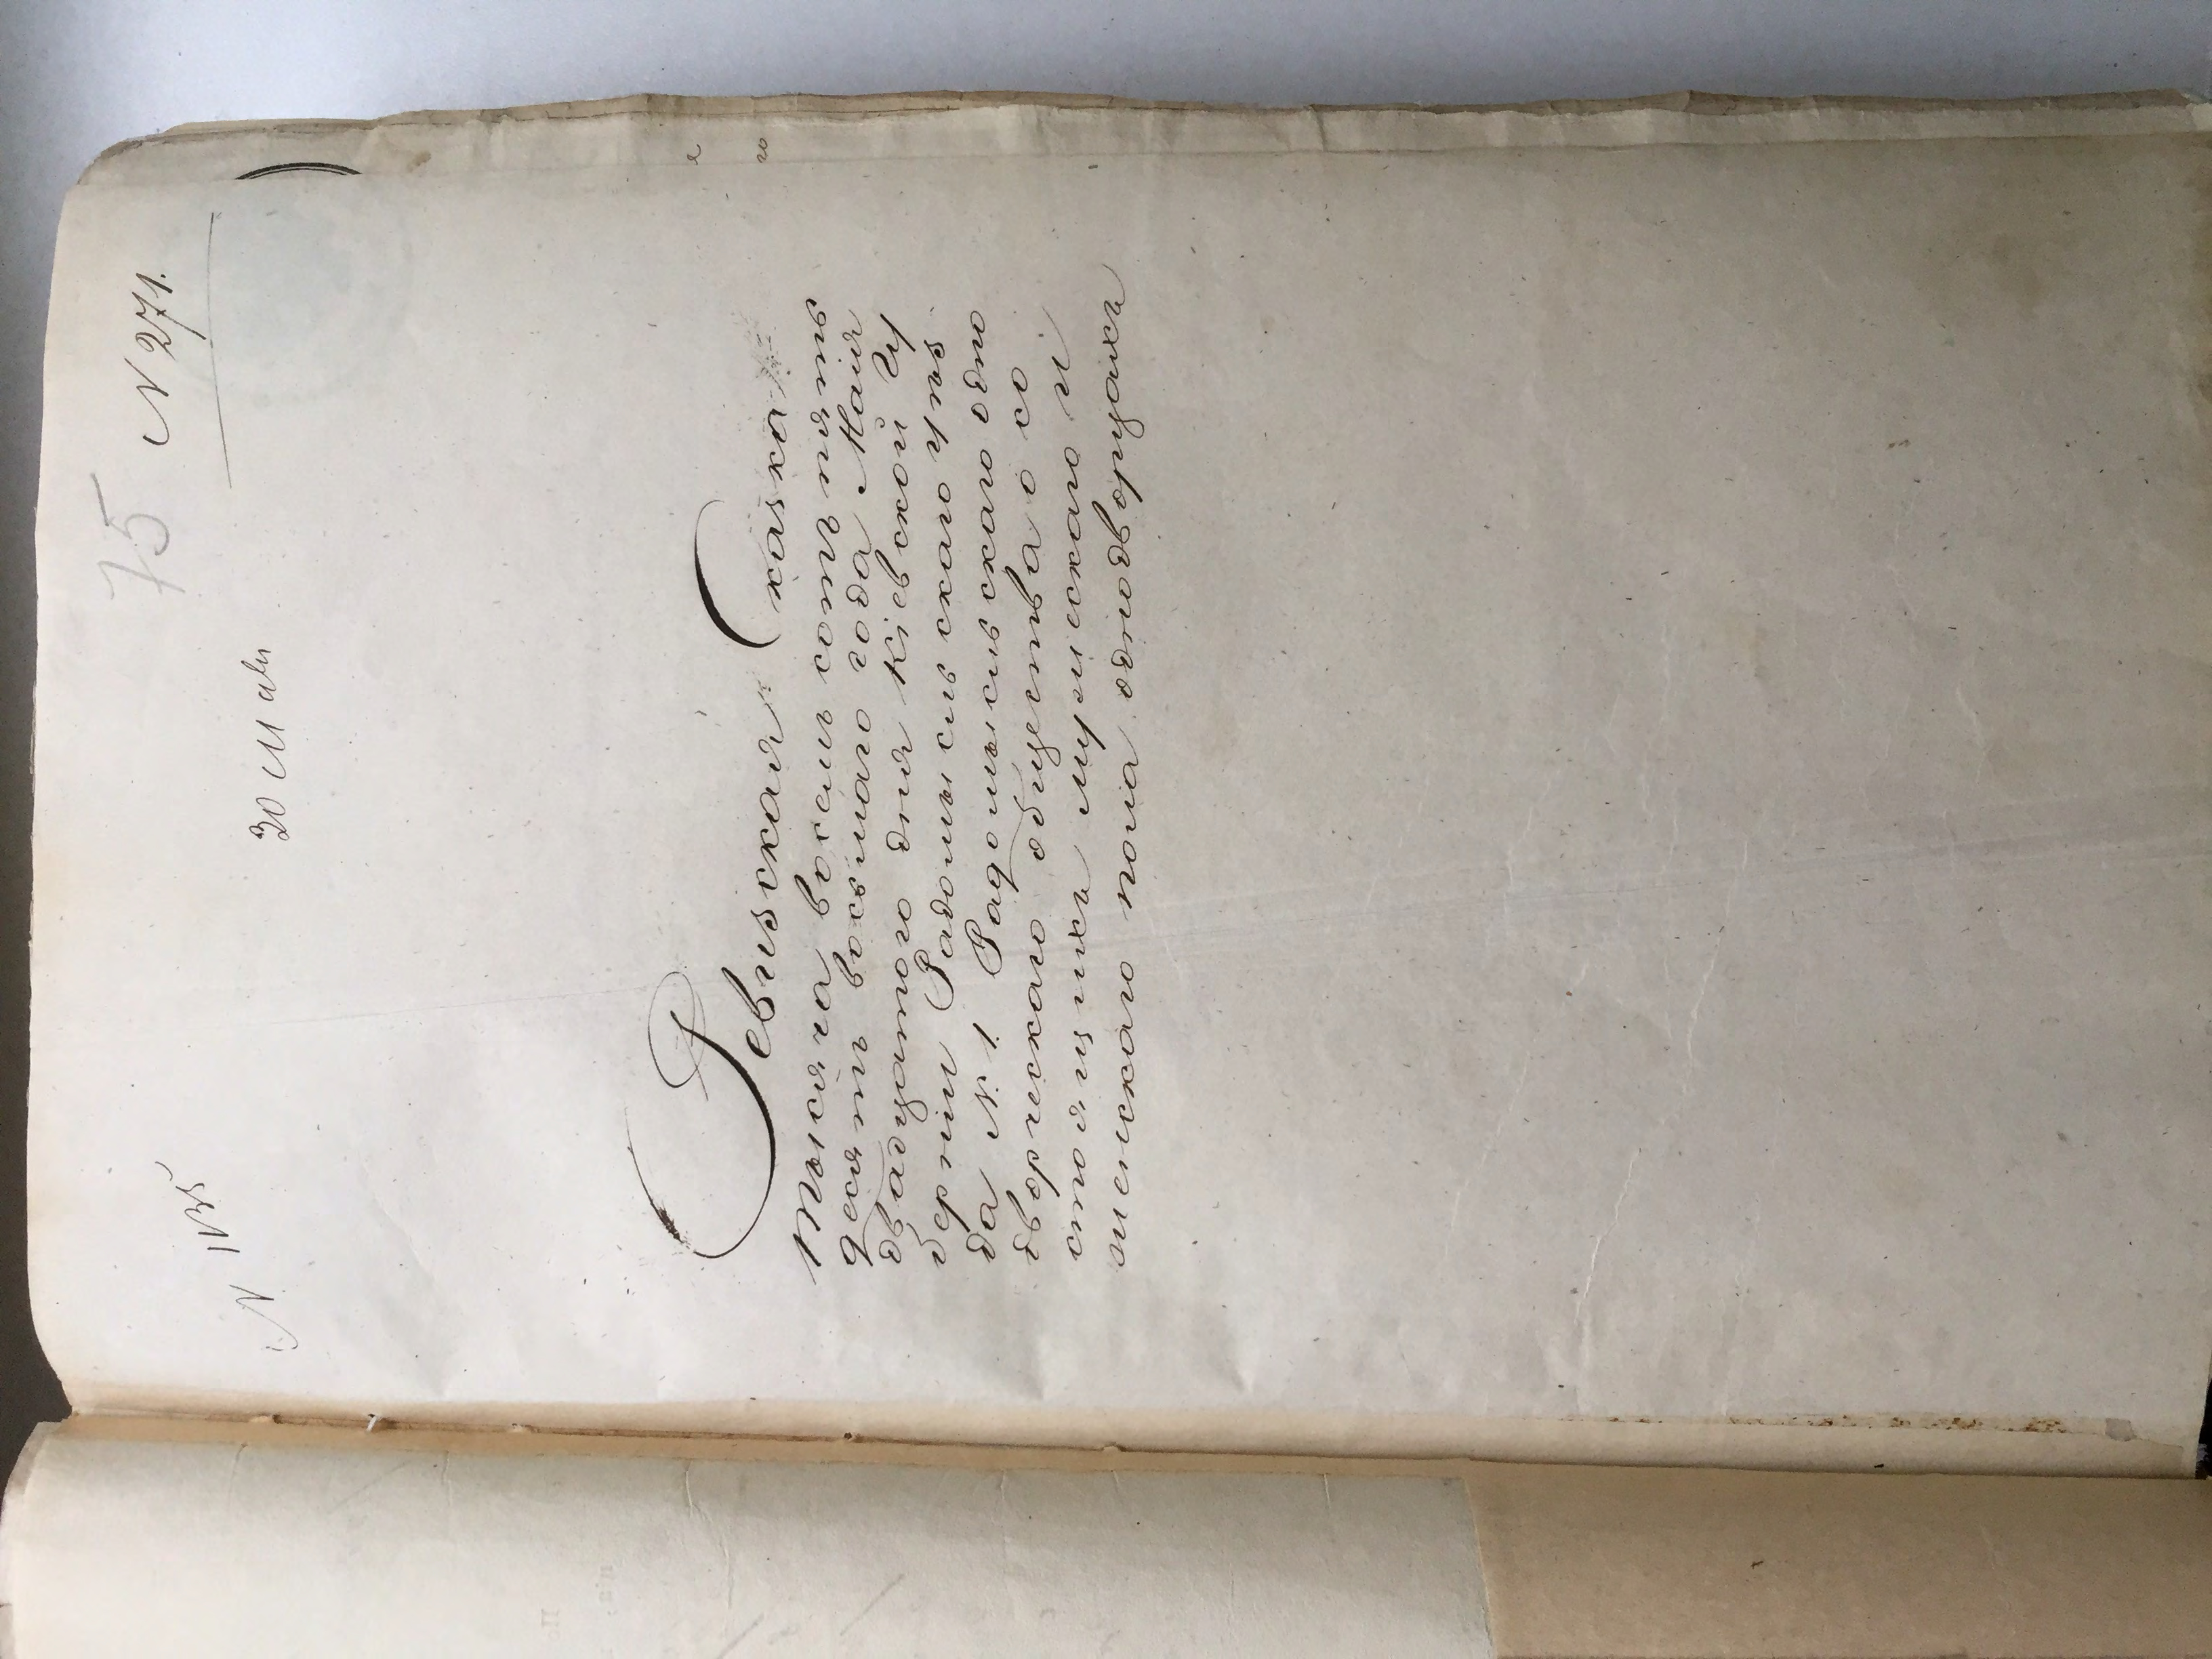 75 N 271.
N 1135
30 Мая
Ревизская Сказка
тысяча восемь сотъ пять
десятъ восьмаго года Маія
двадцатого дня Кіевской Гу
берніи Радомысльскаго уѣз
да N. 1. Радомысльскаго одно
дворческаго общества о со
стоящихъ мужескаго и
женскаго пола однодворцахъ